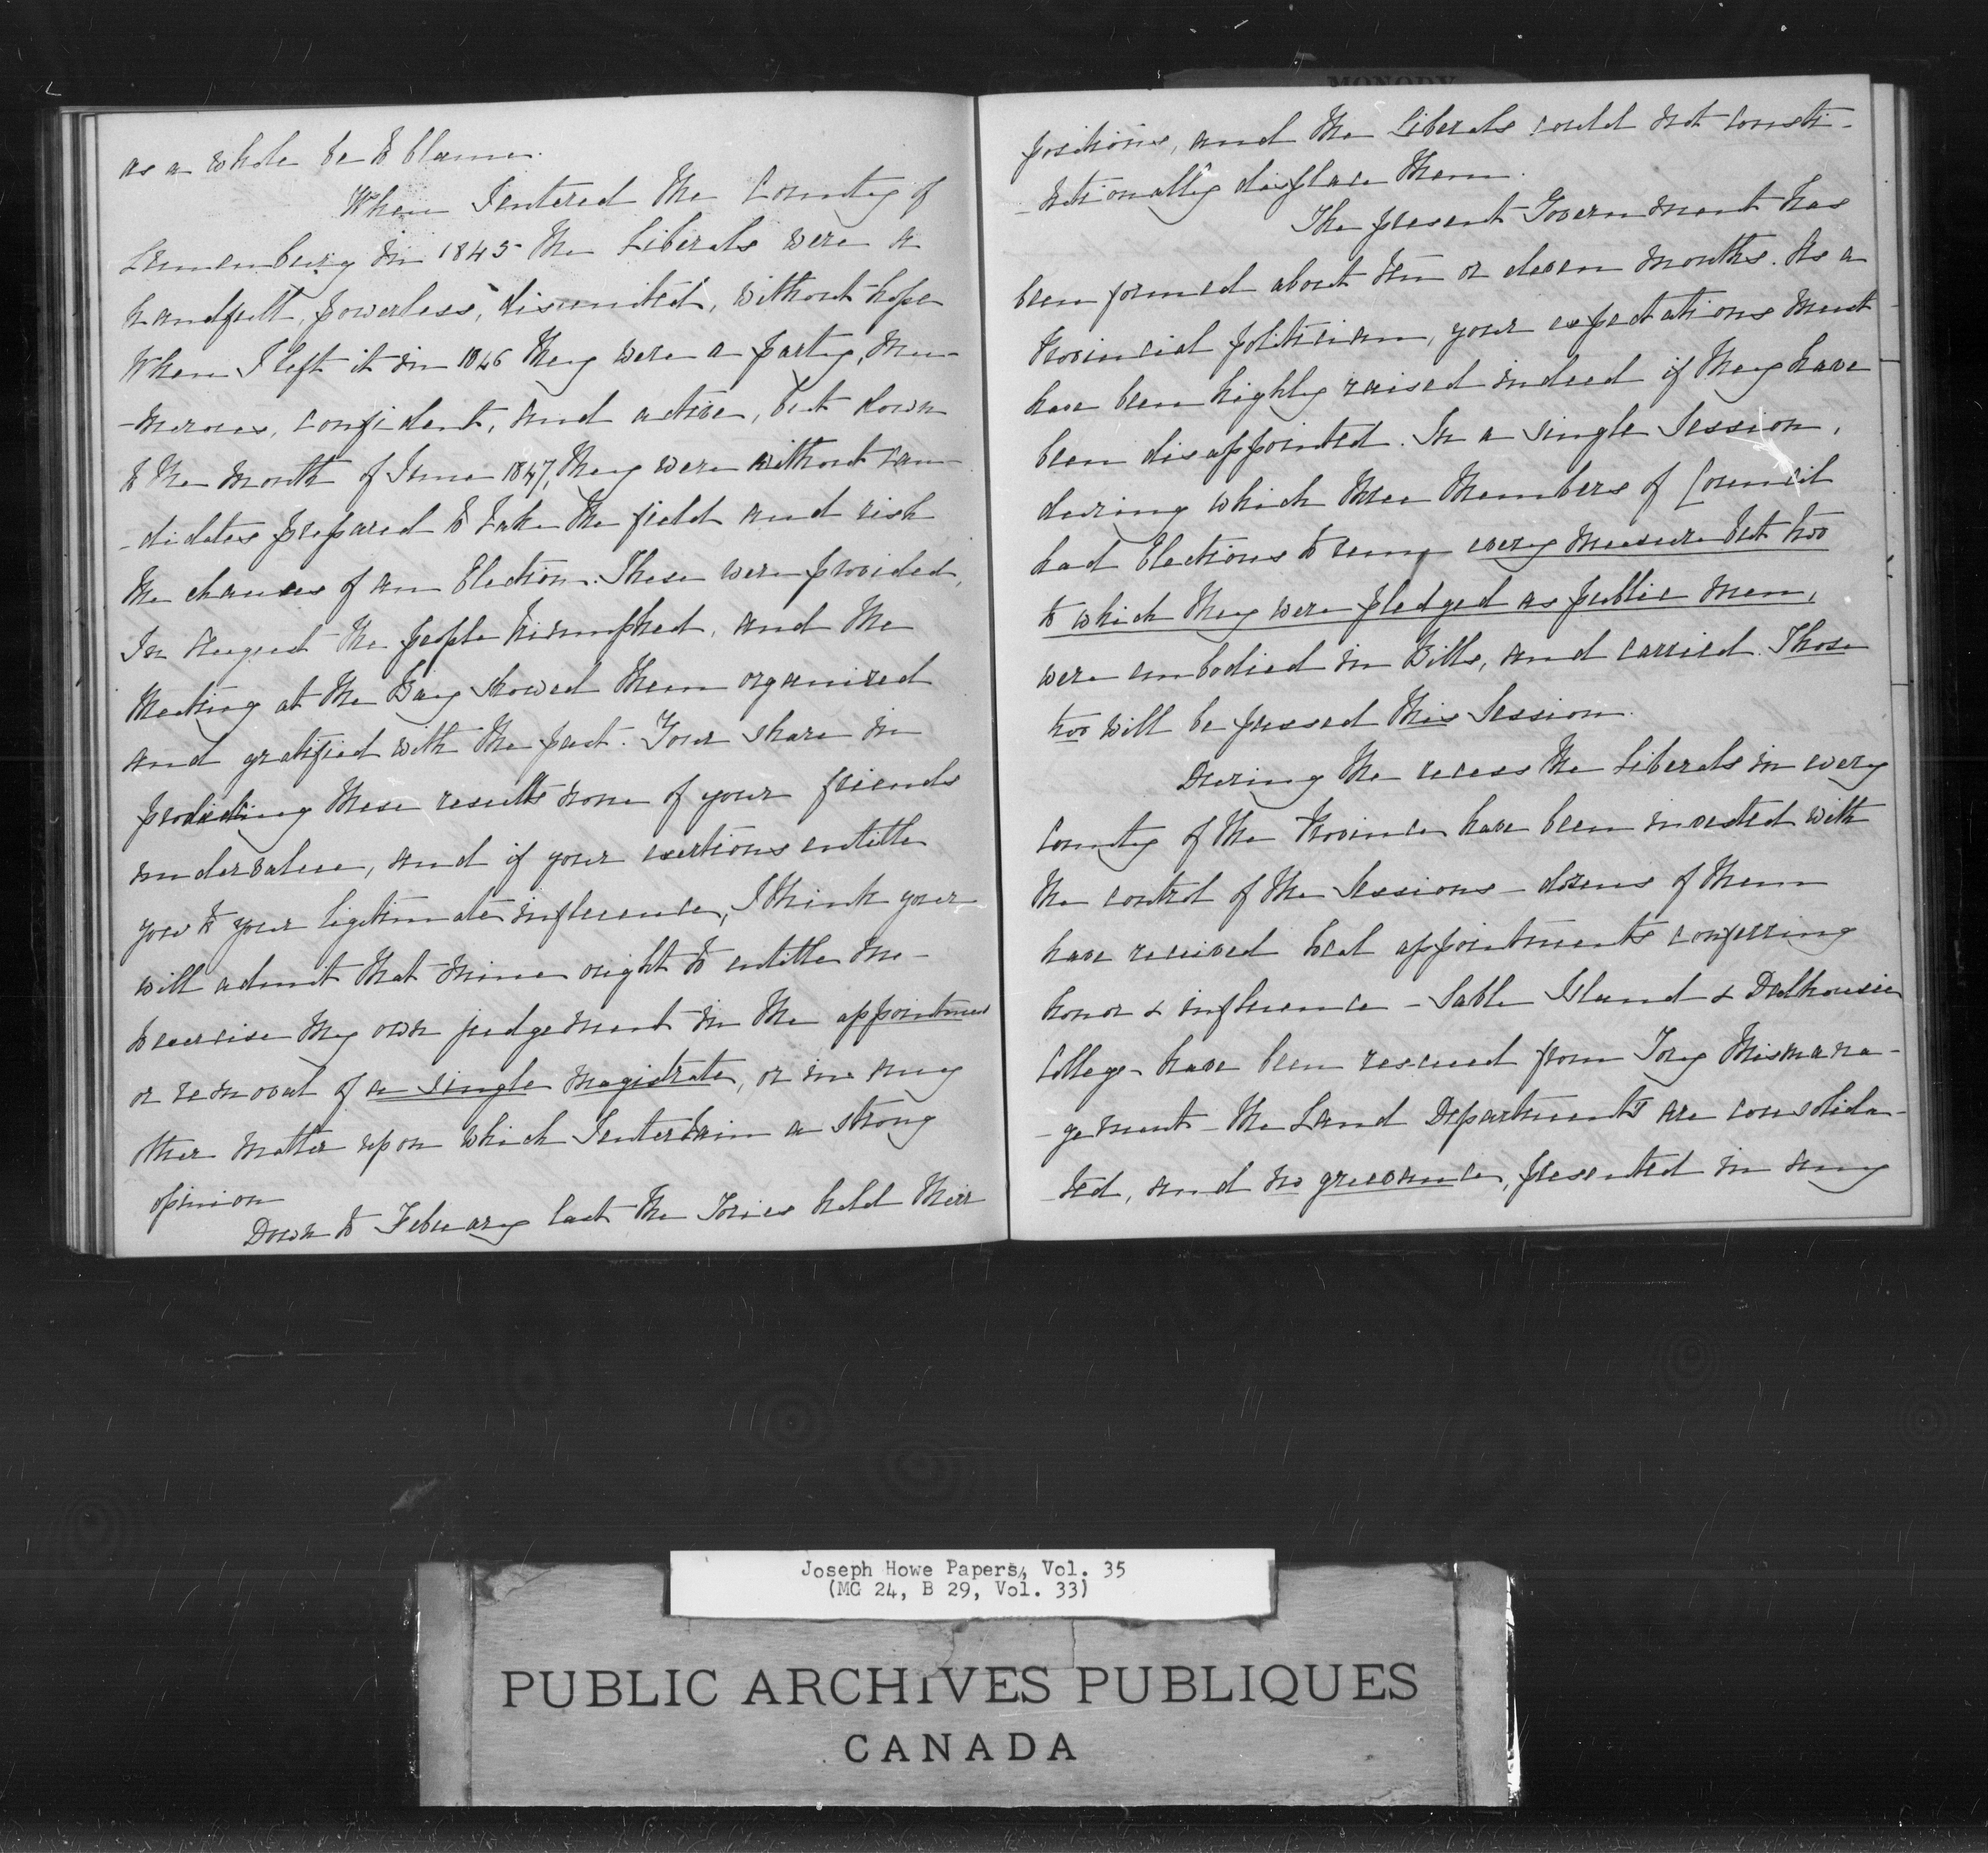 MONODY
as a whole be to blame.
When I entered the County of
Lunenburg in 1845 the Liberals were a
handfull, powerless, disunited, without hope
When I left it in 1846 they were a party, nu-
-merous, confident, and active, but down
to the month of June 1847, they were without can-
-didates prepared to take the field and risk
the chances of an Election. These were provided,
In August the people triumphed, and the
meeting at the Bay showed them organized
and gratified with the past. Your share in
producing these results none of your friends
undervalue, and if your exertions entitle
you to your ligitimate influence, I think you
will admit that mine ought to entitle me
to exercise my own judgement in the appointment
or removal of a single magistrate, or in any
other matter upon which I entertain a strong
opinion
Down to February last the Tories held their
positions, and the Liberals could not consti-
-tutionally displace them.
The present Government has
been formed about ten or eleven months. As a
Provincial politician, your expectations must
have been highly raised indeed if they have
been disappointed. In a single Session,
during which three Members of Council
had Elections to run, every measure but two
to which they were pledged as public men,
were embodied in Bills, and carried. Those
two will be passed this Session.
During the recess the Liberals in every
County of the Province have been invested with
the control of the Sessions - dozens of them
have received local appointments conferring
honor & influence - Sable Island & Dalhousie
College - have been rescued from Tory Mismana-
-gement - the Land Departments are consolida-
-ted, and no grievance, presented in any
Joseph Howe Papers, Vol. 35
(MG 24, B 29, Vol. 33)
PUBLIC ARCHIVES PUBLIQUES
CANADA